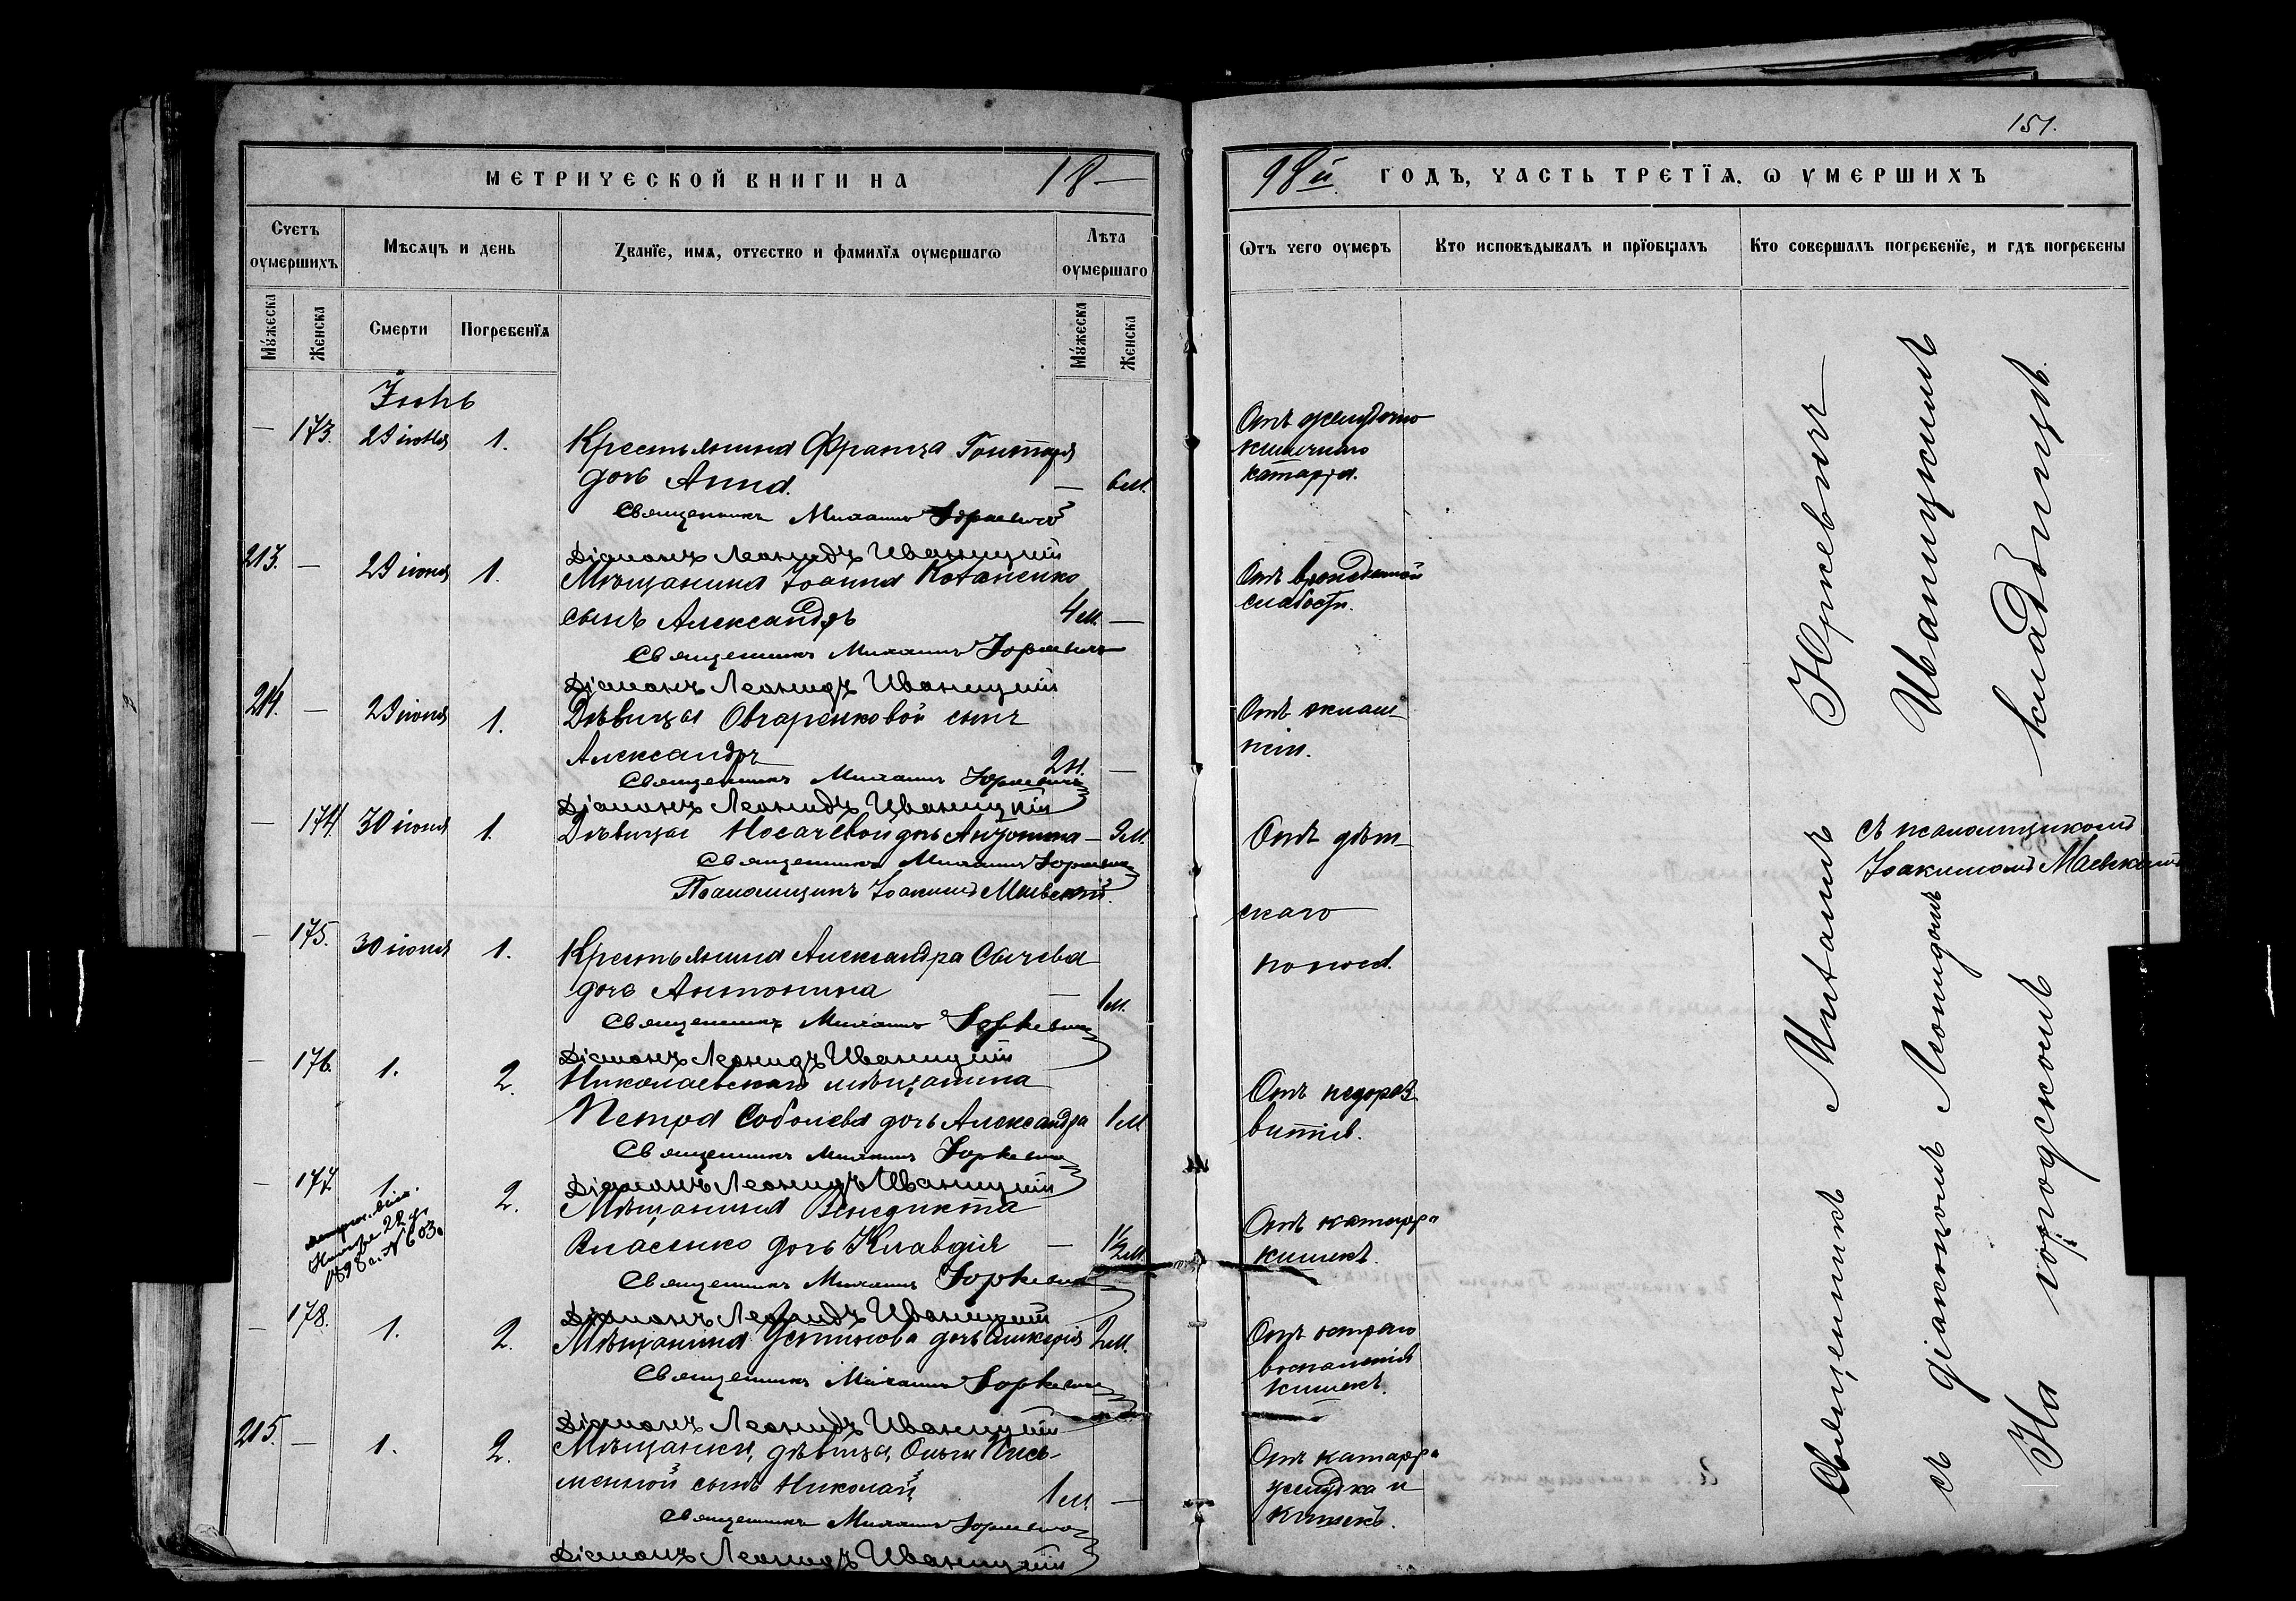 151.
МЕТРИЧЕСКОЙ КНИГИ НА 18—
98й ГОДЪ, ЧАСТЬ ТРЕТІѦ, Ѡ УМЕРШИХЪ
Счетъ оумершихъ
Мѣсяцъ и день
Званіе, имѧ, отчество и фамиліѧ оумершагѡ
Лѣта оумершаго
Ѿтъ чего оумеръ
Кто исповѣдывалъ и пріобщалъ
Кто совершалъ погребеніе, и гдѣ погребены
Мужеска
Женска
Смерти
Погребеніѧ
Мужеска
Женска
Іюль
— 173. 29 іюня 1. Крестьянина Франца
дочь Анна. — 6 м.
Отъ желудочно
кишечнаго
катарра.
Священникъ Михаилъ Юркевичъ
Діаконъ Леонидъ Иваницкій
213. — 29 іюня 1. Мѣщанина Іоанна
сынъ Александръ 4 м. —
Отъ врожденной
слабости.
Священникъ Михаилъ Юркевичъ
Діаконъ Леонидъ Иваницкій
214. — 29 іюня 1. Дѣвицы Овчаренковой сынъ
Александръ —
Священникъ Михаилъ Юркевичъ
Діаконъ Леонидъ Иваницкій
— 174. 30 іюня 1. Дѣвицы Носачевой дочь Антонина —
Отъ дѣт-
скаго
поноса.
Священникъ Михаилъ Юркевичъ
Псаломщикъ Іоакимъ Маевскій.
— 175. 30 іюня 1. Крестьянина Александра Сычева
дочь Антонина — 1 м.
Священникъ Михаилъ Юркевичъ
Діаконъ Леонидъ Иваницкій
— 176. 1. 2. Николаевскаго мѣщанина
Петра Соболева дочь Александра 1 м.
Отъ недораз-
витія.
Священникъ Михаилъ Юркевичъ
Діаконъ Леонидъ Иваницкій
— 177. 1. 2. Мѣщанина Венедикта
Власенко дочь Клавдія — 1½ м.
1898 г. № 603
Отъ катарра
кишекъ.
Священникъ Михаилъ Юркевичъ
Діаконъ Леонидъ Иваницкій
— 178. 1. 2. Мѣщанина Устинова дочь Гликерія 2 м.
Отъ остраго
воспаленія
кишекъ.
Священникъ Михаилъ Юркевичъ
Діаконъ Леонидъ Иваницкій
215. — 1. 2. Мѣщанки, дѣвицы, Ольги Пись-
менной сынъ Николай 1 м. —
Отъ катарра
желудка и
кишекъ.
Священникъ Михаилъ Юркевичъ
Діаконъ Леонидъ Иваницкій
Священникъ Михаилъ Юркевичъ
съ діакономъ Леонидомъ Иваницкимъ
съ псаломщикомъ
Іоакимомъ Маевскимъ
На городскомъ кладбищѣ.